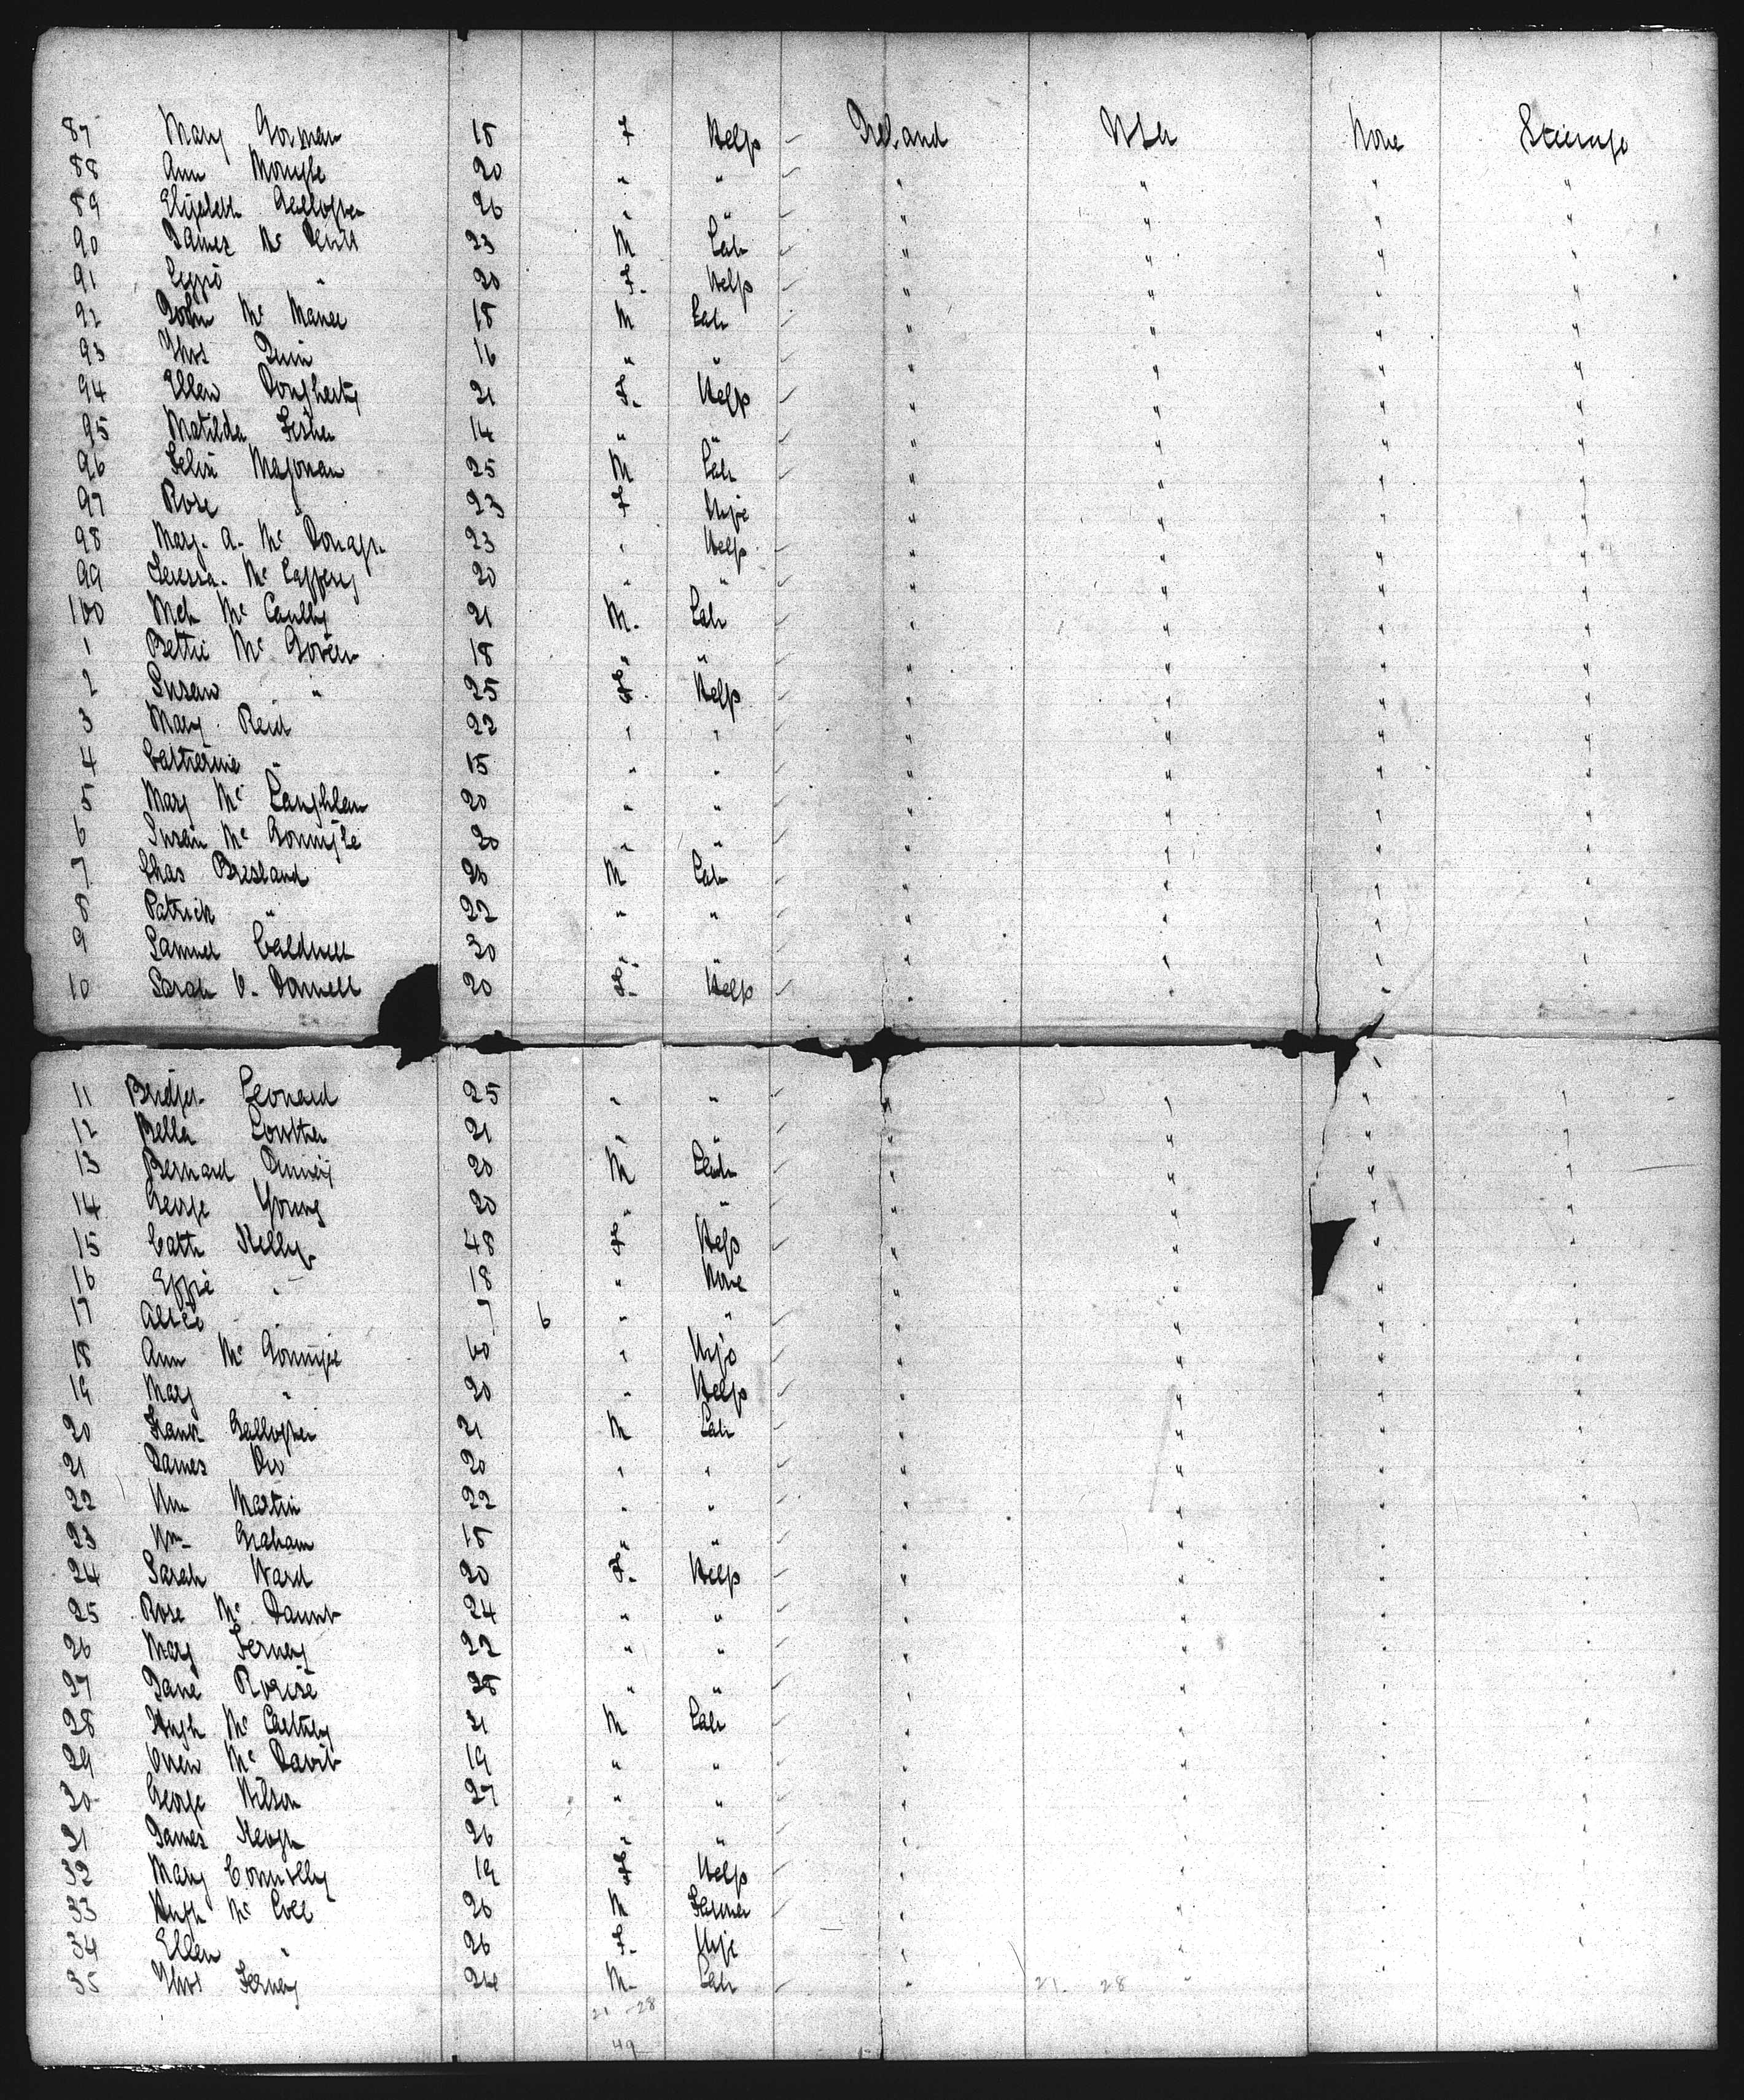 87 Mary Gorman 18 F Help Ireland USA None Steerage
88 Ann Mongle 20 " " " " " "
89 Elizabeth Gallogher 26 " " " " " "
90 James Mc Devitt 23 M Lab " " " "
91 " 20 F. Help " " " "
92 John Mc Manee 18 M Lab " " " "
93 Thos Quin 16 " " " " " "
94 Ellen Dougherty 21 F. Help " " " "
95 Matilda Fisher 14 " " " " " "
96 Felix Magonan 25 M Lab " " " "
97 Rose " 23 F Wife " " " "
98 Mary. A. Mc Donagh 23 " Help " " " "
99 Teressa. Mc Caffery 20 " " " " " "
100 Mch Mc Caully 21 M. Lab " " " "
1 Bettie Mc Goven 18 " " " " " "
2 Susan " 25 F. Help " " " "
3 Mary Reid 22 " " " " " "
4 Catherine " 15 " " " " " "
5 Mary Mc Laughlan 20 " " " " " "
6 Susan Mc Gonnigle 20 " " " " " "
7 Chas Bresland 20 M Lab " " " "
8 Patrick " 22 " " " " " "
9 Samuel Caldwell 30 " " " " " "
10 Sarah O. Donnell 20 F. Help " " " "
11 Bridget Leonard 25 " " " " " "
12 Bella Lowther 21 " " " " " "
13 Bernard 20 M Lab " " " "
14 George Young 20 " " " " " "
15 Cath Kelly 48 F Help " " " "
16 Eppie " 18 " None " " " "
17 Alice " 7 6 " " " " " "
18 Ann Mc Gonnigle 60 " Wife " " " "
19 Mary " 20 " Help " " " "
20 Frank Gallogher 21 M Lab " " " "
21 James Orr 20 " " " " " "
22 Wm Martin 22 " " " " " "
23 Wm Graham 18 " " " " " "
24 Sarah Ward 20 F. Help " " " "
25 Rose Mc 24 " " " " " "
26 Mary Ferney 22 " " " " " "
27 Jane 28 " " " " " "
28 Hugh Mc Carthy 21 M Lab " " " "
29 Owen Mc Davitt 19 " " " " " "
30 George Wilson 27 " " " " " "
31 James Keogh 26 " " " " " "
32 Mary Connolly 19 F Help " " " "
33 Hugh Mc Cole 26 M Farmer " " " "
34 Ellen " 26 F. Wife " " " "
35 Thos Ferney 24 M. Lab " " " "
21 28
21 - 28
49